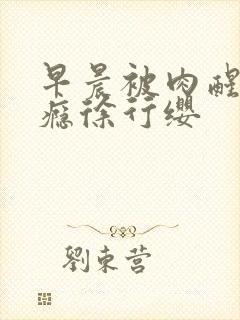 早晨被肉醒
瘾徐行缨
劉東营